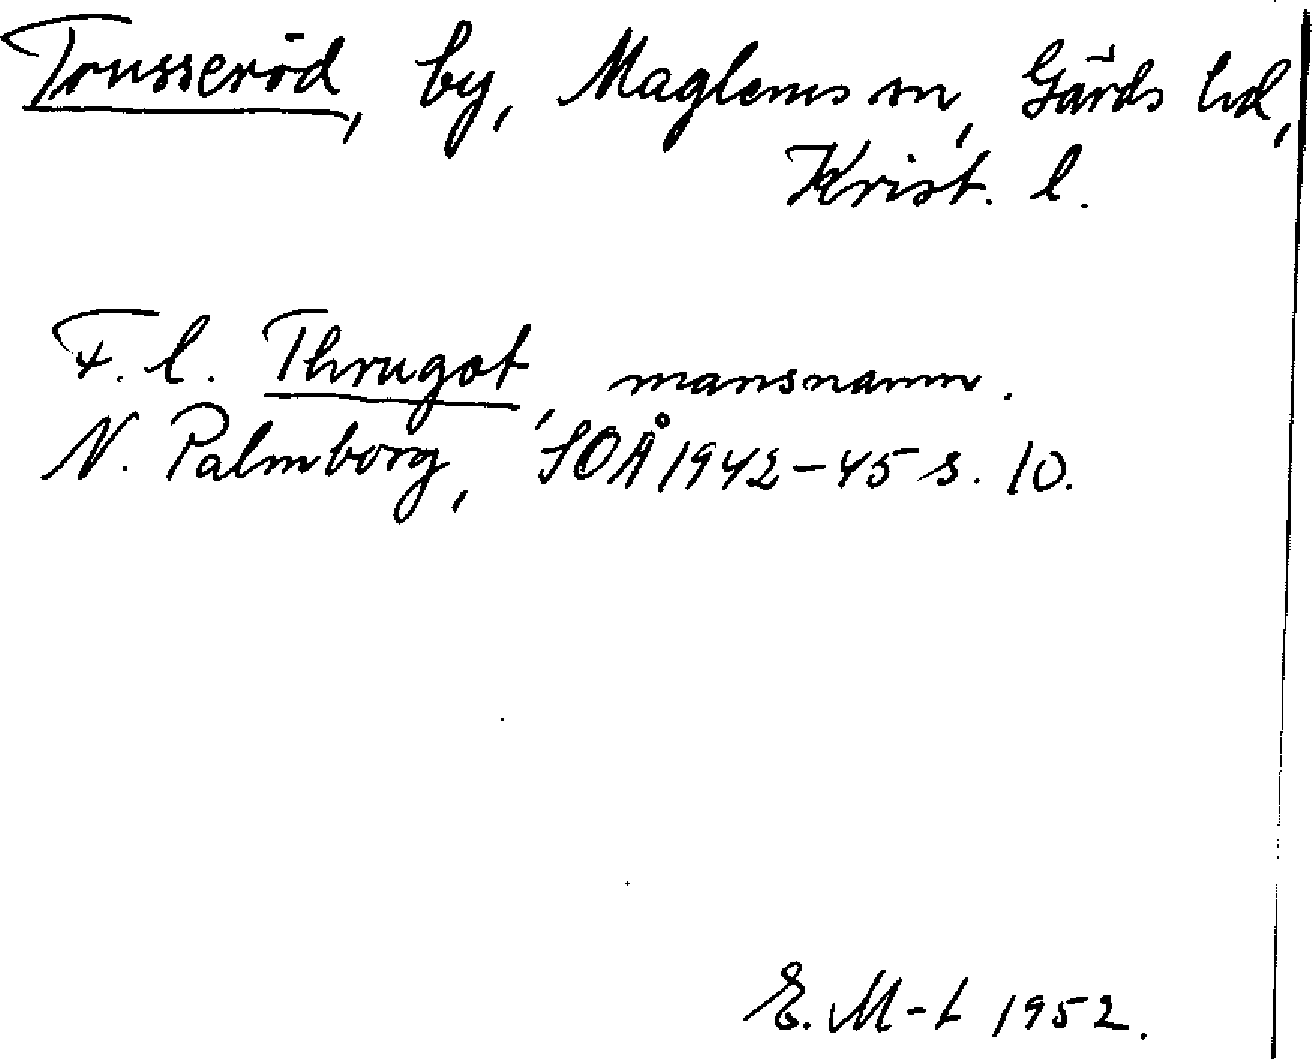 Trusseröd, by, Maglehems sn, Gärds hd,
Krist. l.
F. l. Thrugot, mansnamn.
N. Palmborg, SOÅ 1942-45 s. 10.
E. M-t 1952.